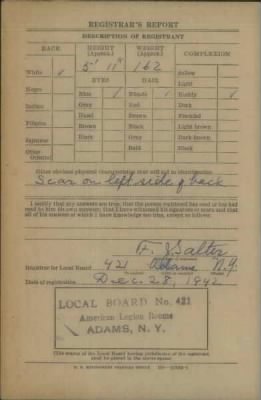 REGISTRAR'S REPORT
DESCRIPTION OF REGISTRANT
RACE HEIGHT (Approx.) WEIGHT (Approx.) COMPLEXION
White 5' 11" 162 Sallow
EYES HAIR Light
Negro Blue Blonde Ruddy
Indian Gray Red Dark
Filipino Hazel Brown Freckled
Brown Black Light brown
Japanese Black Gray Dark brown
Other Oriental Bald Black
Other obvious physical characteristics that will aid in identification
Scar on left side of back
I certify that my answers are true; that the person registered has read or has had
read to him his own answers; that I have witnessed his signature or mark and that
all of his answers of which I have knowledge are true, except as follows:
Registrar for Local Board 421 Adams N.Y.
Date of registration Dec. 28, 1942
LOCAL BOARD No. 421
American Legion Rooms
ADAMS, N. Y.
(The stamp of the Local Board having jurisdiction of the registrant
shall be placed in the above space)
U. S. GOVERNMENT PRINTING OFFICE